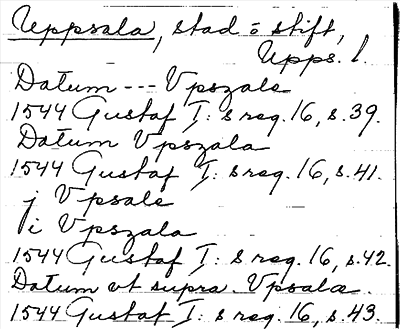 Uppsala, stad o stift,
Upps. l.
Datum --- Vpszale
1544 Gustaf I: s reg. 16, s. 39.
Datum Vpszala
1544 Gustaf I: s reg. 16, s. 41.
j Vpsale
i Vpszala
1544 Gustaf I: s reg. 16, s. 42.
Datum vt supra. Vpsala.
1544 Gustaf I: s reg. 16, s. 43.